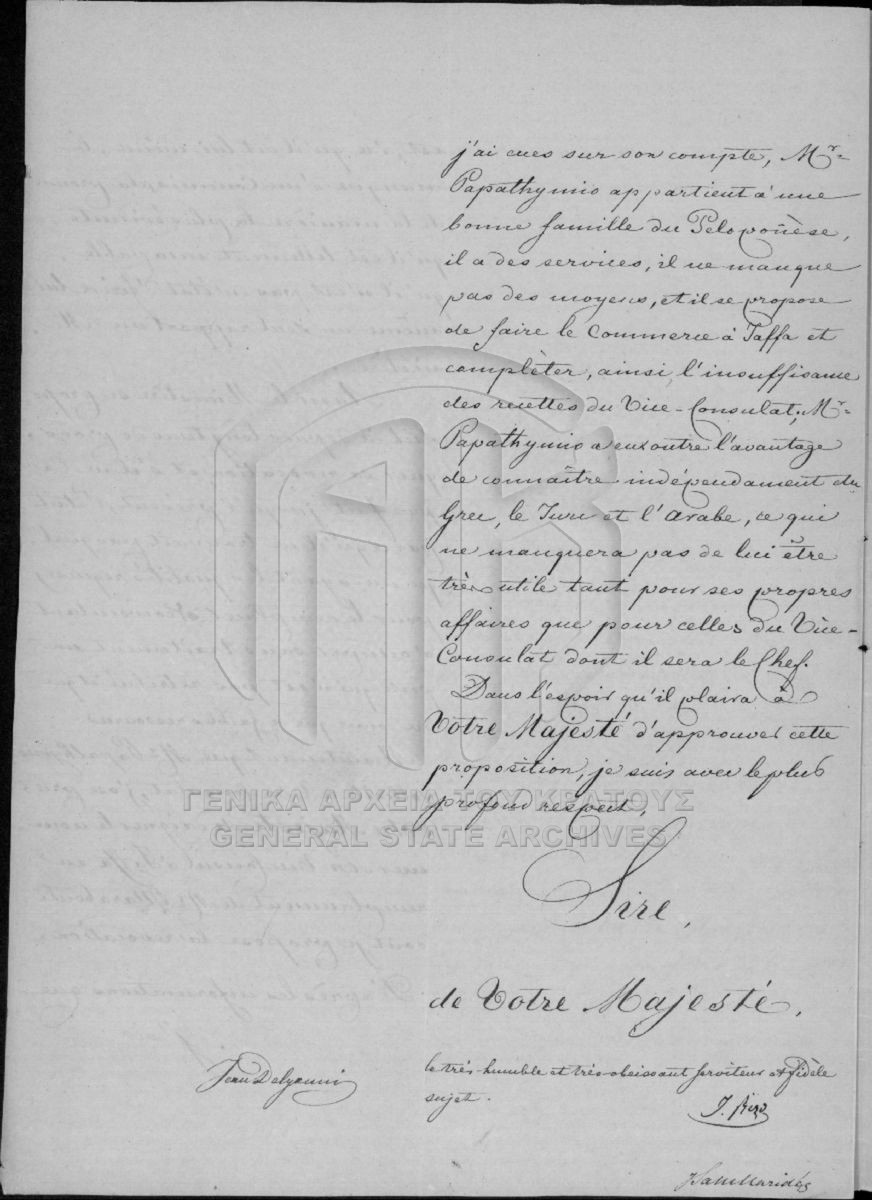 j'ai eues sur son compte, Mr.
Papathymio appartient à une
bonne famille du Péloponèse,
il a des services, il ne manque
pas des moyens, et il se propose
de faire le Commerce à Jaffa et
complèter, ainsi, l'insuffisance
des recettes du Vice-Consulat; Mr.
Papathymio a en outre l'avantage
de connaître indépendament du
Grec, le Turc et l'Arabe, ce qui
ne manquera pas de lui être
très utile tant pour ses propres
affaires que pour celles du Vice-
Consulat dont il sera le Chef.
Dans l'espoir qu'il plaira à
Votre Majesté d'approuver cette
proposition, je suis avec le plus
profond respect,
ΓΕΝΙΚΑ ΑΡΧΕΙΑ ΤΟΥ ΚΡΑΤΟΥΣ
GENERAL STATE ARCHIVES
Sire,
de Votre Majesté,
le très-humble et très-obeissant serviteur et fidèle
sujet.
Jean Delyanni